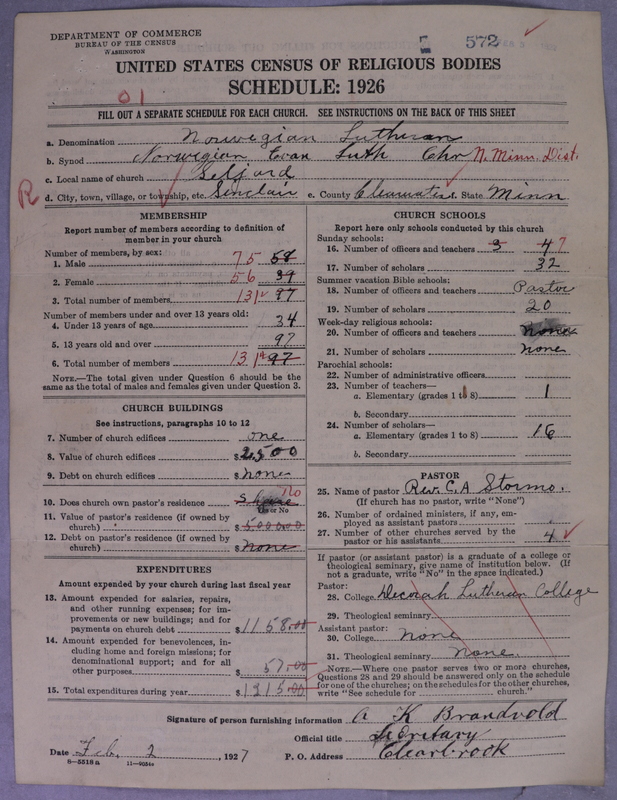 DEPARTMENT OF COMMERCE
BUREAU OF THE CENSUS
WASHINGTON
572
UNITED STATES CENSUS OF RELIGIOUS BODIES
SCHEDULE: 1926
01
FILL OUT A SEPARATE SCHEDULE FOR EACH CHURCH. SEE INSTRUCTIONS ON THE BACK OF THIS SHEET
a. Denomination Norwegian Lutheran
b. Synod Norwegian Evan Luth Chr N. Minn. Dist.
c. Local name of church Seljord
R d. City, town, village, or township, etc. Sinclair e. County Clearwater f. State Minn
MEMBERSHIP
Report number of members according to definition of
member in your church
Number of members, by sex:
1. Male 75 58
2. Female 56 39
3. Total number of members 131 97
Number of members under and over 13 years old:
4. Under 13 years of age 34
5. 13 years old and over 97
6. Total number of members 131 97
NOTE.—The total given under Question 6 should be
the same as the total of males and females given under Question 3.
CHURCH BUILDINGS
See instructions, paragraphs 10 to 12
7. Number of church edifices one
8. Value of church edifices $2,500
9. Debt on church edifices $ None
10. Does church own pastor's residence Share No
Yes or No
11. Value of pastor's residence (if owned by
church) $5000.00
12. Debt on pastor's residence (if owned by
church) $ None
EXPENDITURES
Amount expended by your church during last fiscal year
13. Amount expended for salaries, repairs,
and other running expenses; for im-
provements or new buildings; and for
payments on church debt $1158.00
14. Amount expended for benevolences, in-
cluding home and foreign missions; for
denominational support; and for all
other purposes $ 57.00
15. Total expenditures during year $1215.00
CHURCH SCHOOLS
Report here only schools conducted by this church
Sunday schools:
16. Number of officers and teachers 3 4 7
17. Number of scholars 32
Summer vacation Bible schools:
18. Number of officers and teachers Pastor
19. Number of scholars 20
Week-day religious schools:
20. Number of officers and teachers None
21. Number of scholars None
Parochial schools:
22. Number of administrative officers
23. Number of teachers—
a. Elementary (grades 1 to 8) 1
b. Secondary
24. Number of scholars—
a. Elementary (grades 1 to 8) 16
b. Secondary
PASTOR
25. Name of pastor Rev. C. A Stormo.
(If church has no pastor, write "None")
26. Number of ordained ministers, if any, em-
ployed as assistant pastors
27. Number of other churches served by the
pastor or his assistants 4
If pastor (or assistant pastor) is a graduate of a college or
theological seminary, give name of institution below. (If
not a graduate, write "No" in the space indicated.)
Pastor:
28. College Decorah Lutheran College
29. Theological seminary
Assistant pastor:
30. College None
31. Theological seminary None.
NOTE.—Where one pastor serves two or more churches,
Questions 28 and 29 should be answered only on the schedule
for one of the churches; on the schedules for the other churches,
write "See schedule for church."
Signature of person furnishing information A K Brandvold
Official title Secretary
Date Feb. 2, 1927 P. O. Address Clearbrook
8—5518a 11—9054